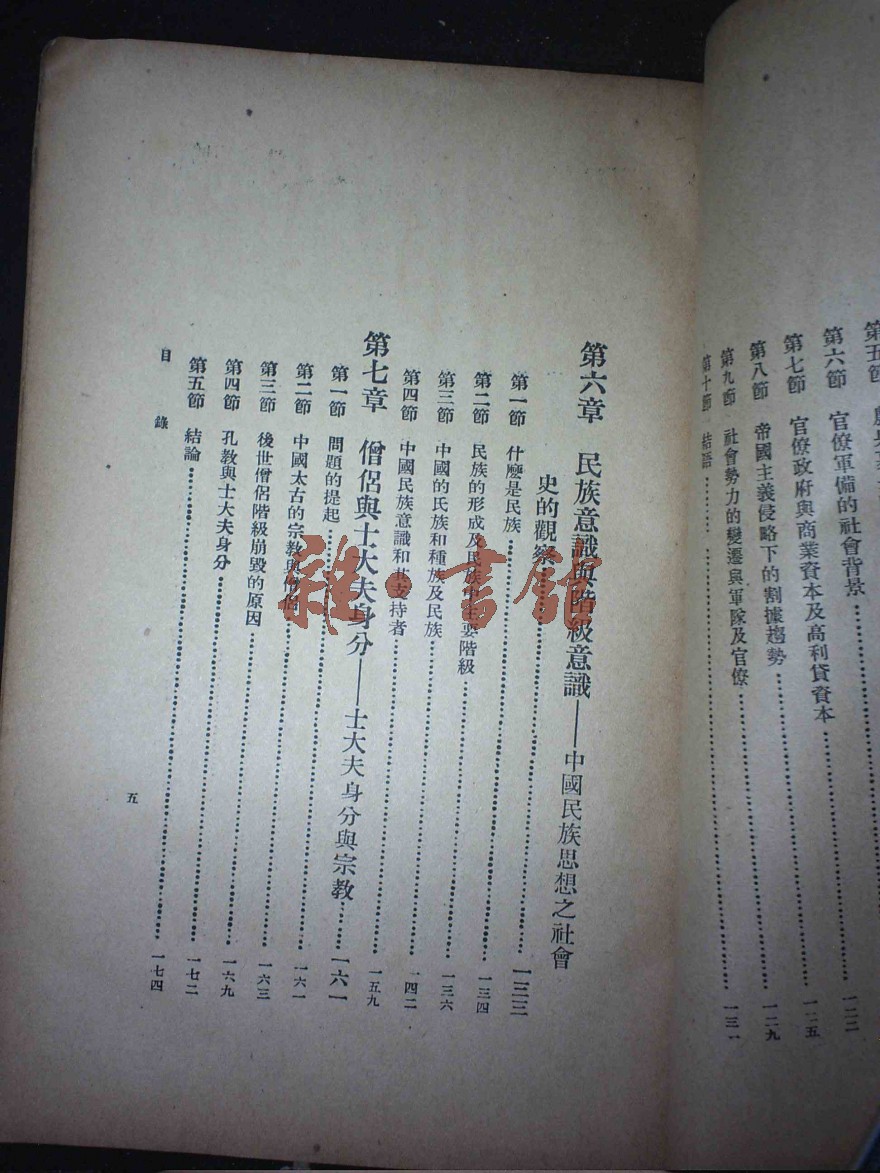 第五節
第六節 官僚軍備的社會背景……一二二
第七節 官僚政府與商業資本及高利貸資本……一二五
第八節 帝國主義侵略下的割據趨勢……一二九
第九節 社會勢力的變遷與軍隊及官僚……一三一
第十節 結語……
第六章 民族意識與階級意識——中國民族思想之社會
史的觀察……一三三
第一節 什麼是民族……一三四
第二節 民族的形成及民族中主要階級……一三六
第三節 中國的民族和種族及民族……一四二
第四節 中國民族意識和其支持者……一五九
第七章 僧侶與士大夫身分——士大夫身分與宗教……一六一
第一節 問題的提起……一六一
第二節 中國太古的宗教與僧侶……一六三
第三節 後世僧侶階級崩毀的原因……一六九
第四節 孔教與士大夫身分……一七二
第五節 結論……一七四
目錄
五
雜·書館